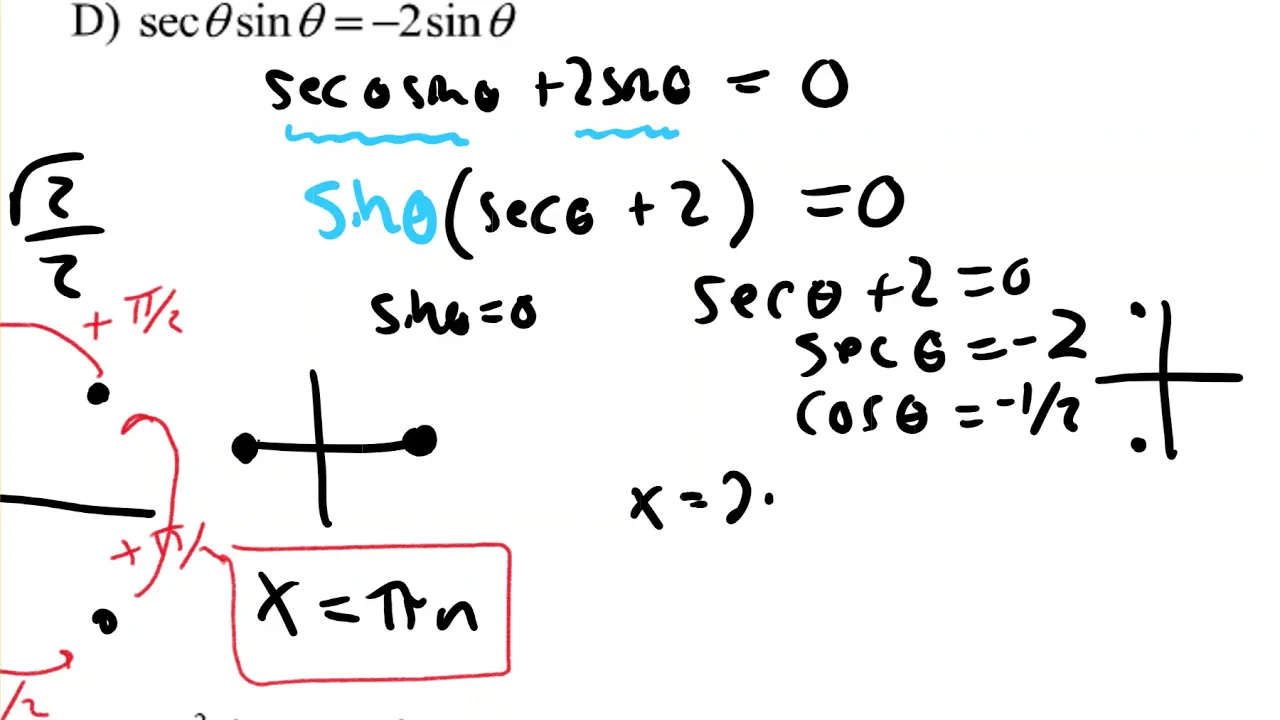 D) secθsinθ=−2sinθ
secθsinθ +2sinθ = 0
√2/2
sinθ(secθ +2) =0
+π/2
sinθ=0
secθ +2=0
secθ =-2
cosθ =-1/2
x=2
+π/2
x=πn
/2